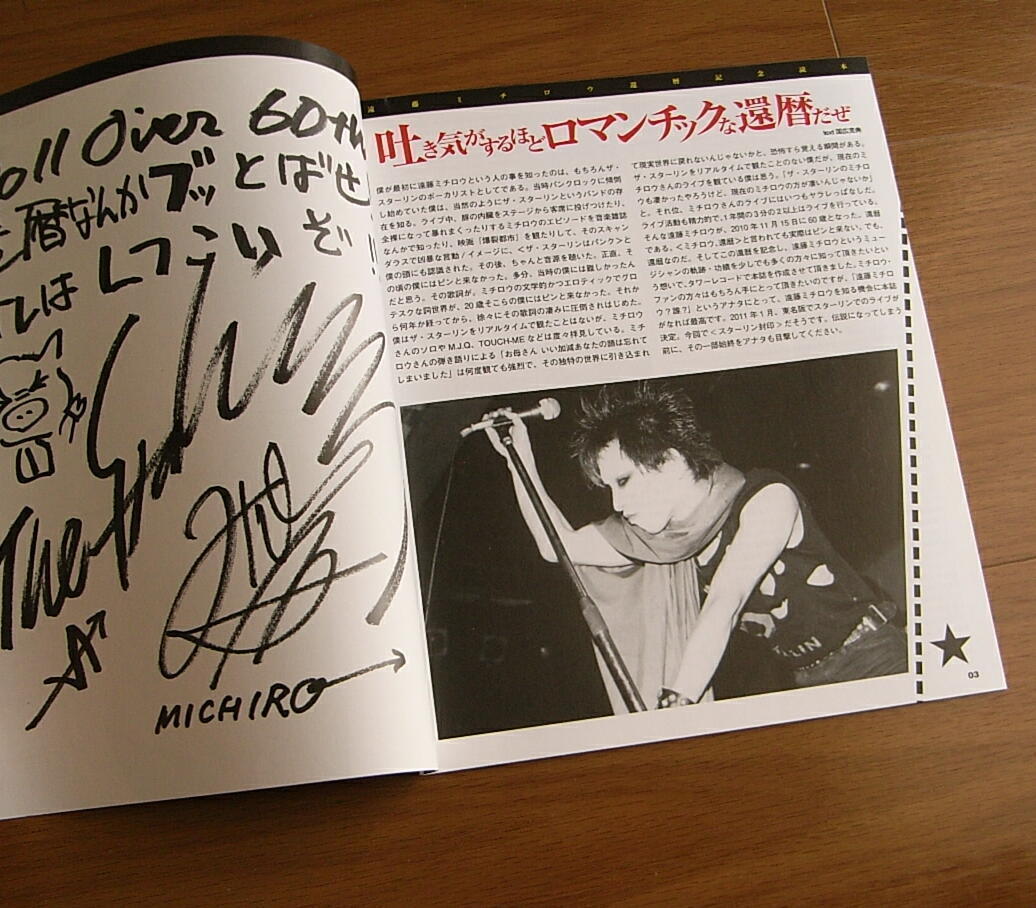 oll Over 60th
暦なんかブッとばせ
レはしつこいぞ!!
The
MICHIRO
遠藤ミチロウ還暦記念読本
吐き気がするほどロマンチックな還暦だぜ
text 国広克典
僕が最初に遠藤ミチロウという人の事を知ったのは、もちろんザ・
スターリンのボーカリストとしてである。当時パンクロックに傾倒
し始めていた僕は、当然のようにザ・スターリンというバンドの存
在を知る。ライブ中、豚の内臓をステージから客席に投げつけたり、
全裸になって暴れまくったりするミチロウのエピソードを音楽雑誌
なんかで知ったり、映画「爆裂都市」を観たりして、そのスキャン
ダラスで凶暴な言動/イメージに、<ザ・スターリンはパンク>と
僕の頭にも認識された。その後、ちゃんと音源を聴いた。正直、そ
の頃の僕にはピンと来なかった。多分、当時の僕には難しかったん
だと思う。その歌詞が。ミチロウの文学的かつエロティックでグロ
テスクな詞世界が、20歳そこらの僕にはピンと来なかった。それか
ら何年か経ってから、徐々にその歌詞の凄みに圧倒されはじめた。
僕はザ・スターリンをリアルタイムで観たことはないが、ミチロウ
さんのソロやM.J.Q、TOUCH-MEなどは度々拝見している。ミチ
ロウさんの弾き語りによる「お母さん いい加減あなたの顔は忘れて
しまいました」は何度観ても強烈で、その独特の世界に引き込まれ
て現実世界に戻れないんじゃないかと、恐怖すら覚える瞬間がある。
ザ・スターリンをリアルタイムで観たことのない僕だが、現在のミ
チロウさんのライブを観ている僕は思う。「ザ・スターリンのミチロ
ウも凄かったやろうけど、現在のミチロウの方が凄いんじゃないか」
と。それ位、ミチロウさんのライブにはいつもヤラレっぱなしだ。
ライブ活動も精力的で、1年間の3分の2以上はライブを行っている。
そんな遠藤ミチロウが、2010年11月15日に60歳となった。還暦
である。<ミチロウ、還暦>と言われても実際はピンと来ない。でも、
還暦なのだ。そしてこの還暦を記念し、遠藤ミチロウというミュー
ジシャンの軌跡・功績を少しでも多くの方々に知って頂きたいとい
う想いで、タワーレコードで本誌を作成させて頂きました。ミチロウ・
ファンの方々はもちろん手にとって頂きたいのですが、「遠藤ミチロ
ウ?誰?」というアナタにとって、遠藤ミチロウを知る機会に本誌
がなれば最高です。2011年1月、東名阪でスターリンでのライブが
決定。今回で<スターリン封印>だそうです。伝説になってしまう
前に、その一部始終をアナタも目撃してください。
LIN
03